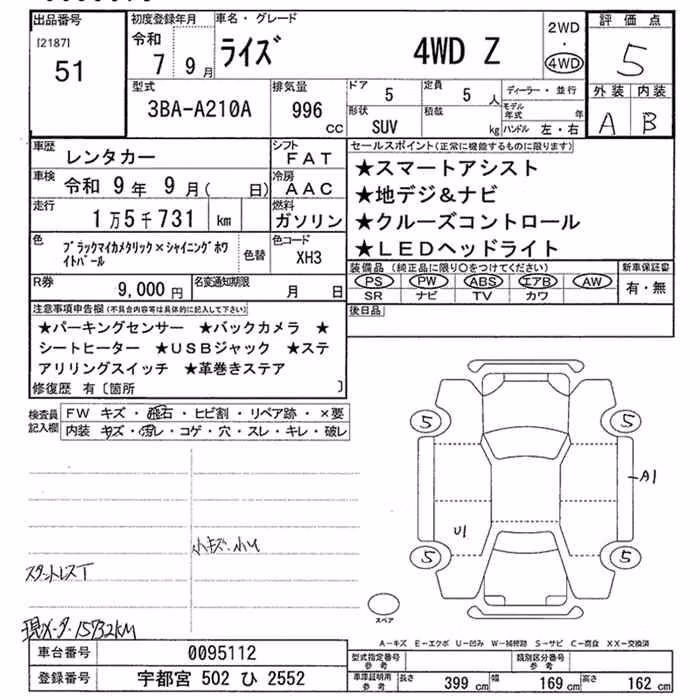 出品番号
[2187]
51
初度登録年月
令和
7 9月
車名・グレード
ライズ 4WD Z
2WD
・
4WD
評価点
5
外装 内装
A B
型式
3BA-A210A
排気量
996
CC
ドア
5
定員
5 人
形状
SUV
積載
kg
ディーラー・並行
モデル年式 年
ハンドル 左・右
車歴 レンタカー
シフト
FAT
車検 令和 9年 9月( 日)
冷房
AAC
走行 1万5千731 km
燃料
ガソリン
色
ブラックマイカメタリック×シャイニングホワ
イトパール
色替
色コード
XH3
R券 9,000円
名変通知期限 月 日
セールスポイント(正常に機能するものに限ります)
★スマートアシスト
★地デジ&ナビ
★クルーズコントロール
★LEDヘッドライト
装備品(純正品に限り○をつけてください)
PS PW ABS エアB AW
SR ナビ TV カワ
新車保証書
有・無
後日品
注意事項申告欄(不具合内容等は具体的に記入して下さい)
★パーキングセンサー ★バックカメラ ★
シートヒーター ★USBジャック ★ステ
アリリングスイッチ ★革巻きステア
修復歴 有〔箇所 〕
検査員
記入欄
FW キズ・飛石・ヒビ割・リペア跡・×要
内装 キズ・汚レ・コゲ・穴・スレ・キレ・破レ
小キズ.小U
スタットレスT
現メーター15732KM
5 5
A1
U1
5 5
スペア
A-キズ E-エクボ U-凹み W-補修跡 S-サビ C-腐食 XX-交換済
車台番号 0095112
登録番号 宇都宮 502 ひ 2552
型式指定番号
参考
類別区分番号
参考
車庫証明用
参考
長さ 399 cm 幅 169 cm 高さ 162 cm